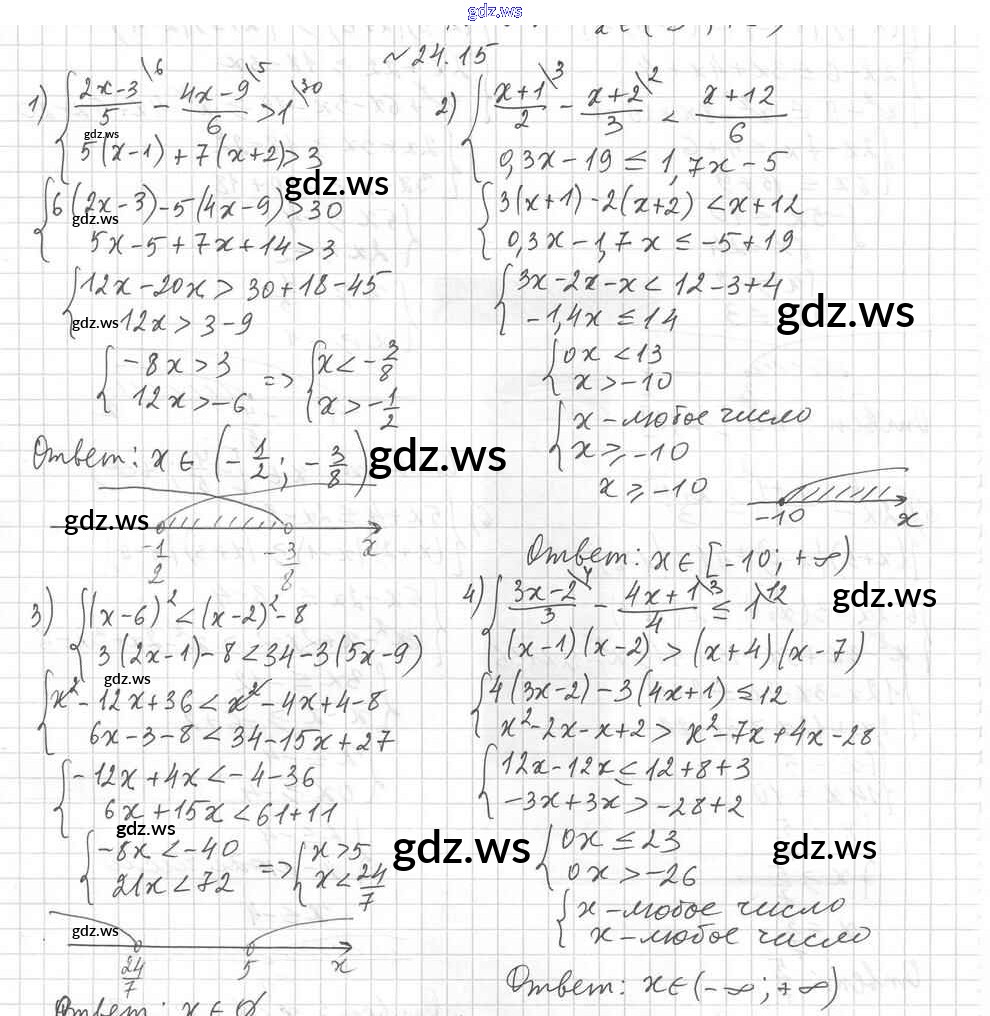 gdz.ws
№ 24.15
1) { (2x-3)/5 \6 - (4x-9)/6 \5 > 1 \30
5(x-1) + 7(x+2) > 3
{ 6(2x-3) - 5(4x-9) > 30
5x-5+7x+14 > 3
{ 12x-20x > 30+18-45
12x > 3-9
{ -8x > 3
12x > -6
=> { x < -3/8
x > -1/2
Ответ: x ∈ (-1/2; -3/8)
-1/2 -3/8 x
2) { (x+1)/2 \3 - (x+2)/3 \2 < (x+12)/6
0,3x-19 ≤ 1,7x-5
{ 3(x+1) - 2(x+2) < x+12
0,3x-1,7x ≤ -5+19
{ 3x-2x-x < 12-3+4
-1,4x ≤ 14
{ 0x < 13
x > -10
{ x - любое число
x ≥ -10
x ≥ -10
-10 x
Ответ: x ∈ [-10; +∞)
3) { (x-6)² < (x-2)² - 8
3(2x-1) - 8 < 34 - 3(5x-9)
{ x² - 12x + 36 < x² - 4x + 4 - 8
6x-3-8 < 34-15x+27
{ -12x+4x < -4-36
6x+15x < 61+11
{ -8x < -40
21x < 72
=> { x > 5
x < 24/7
24/7 5 x
Ответ: x ∈ Ø
4) { (3x-2)/3 \4 - (4x+1)/4 \3 ≤ 1 \12
(x-1)(x-2) > (x+4)(x-7)
{ 4(3x-2) - 3(4x+1) ≤ 12
x²-2x-x+2 > x²-7x+4x-28
{ 12x-12x ≤ 12+8+3
-3x+3x > -28+2
{ 0x ≤ 23
0x > -26
{ x - любое число
x - любое число
Ответ: x ∈ (-∞; +∞)
gdz.ws
gdz.ws
gdz.ws
gdz.ws
gdz.ws
gdz.ws
gdz.ws
gdz.ws
gdz.ws
gdz.ws
gdz.ws
gdz.ws
gdz.ws